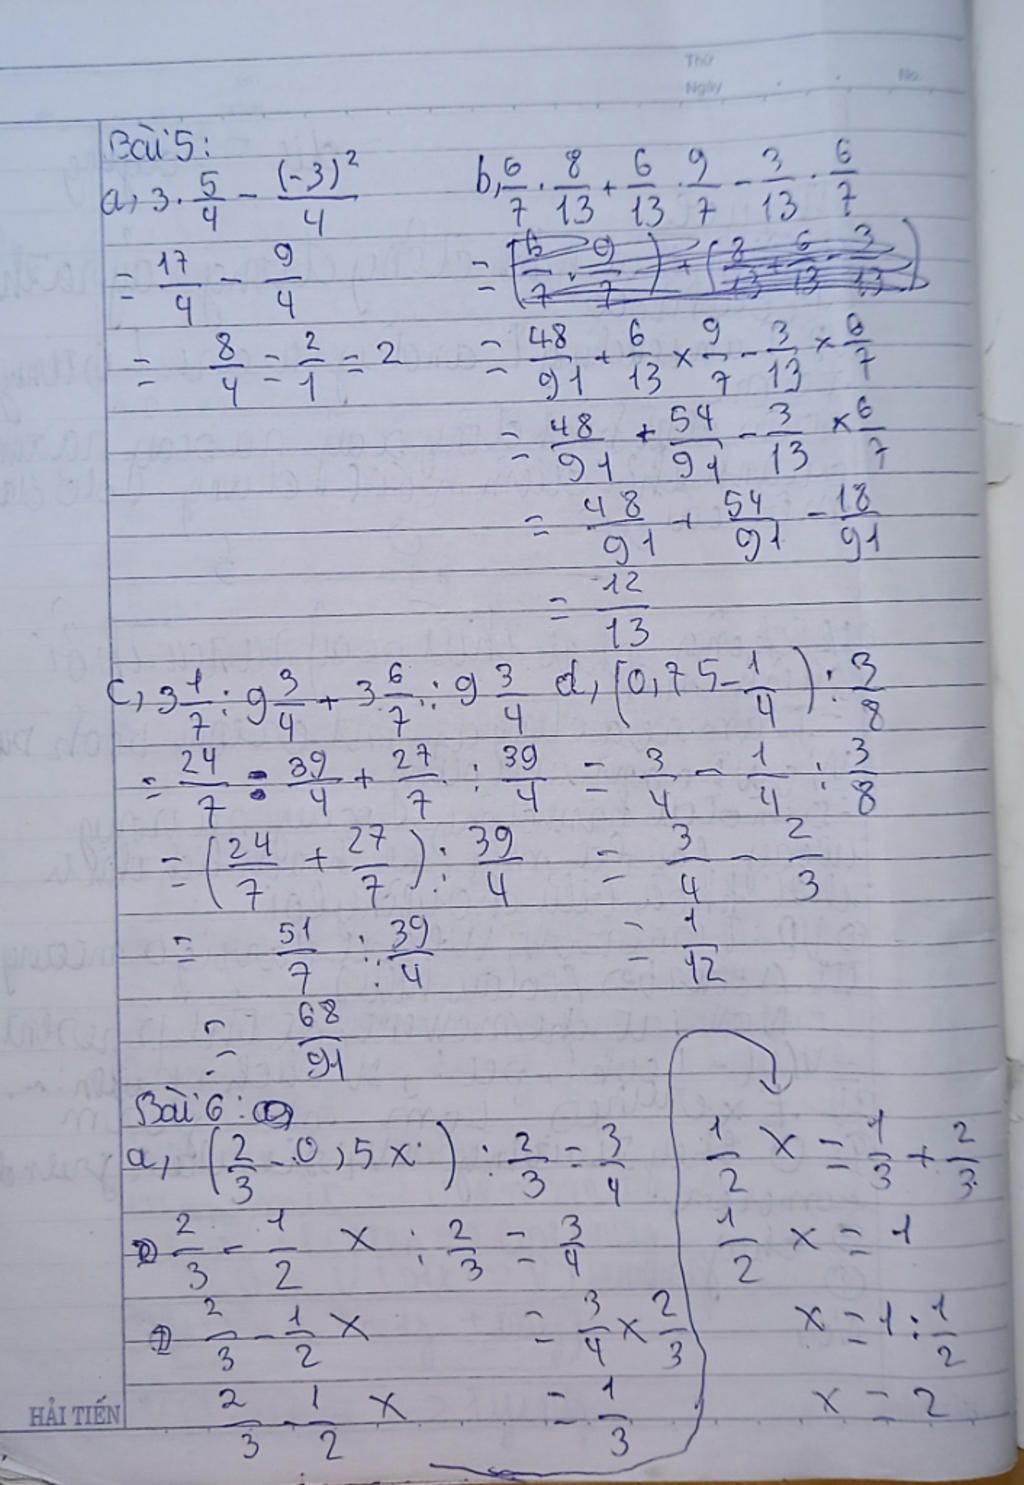 Thứ
Ngày No.
Bài 5:
a, 3 . 5/4 - (-3)²/4
= 17/4 - 9/4
= 8/4 = 2/1 = 2
b, 6/7 . 8/13 + 6/13 . 9/7 - 3/13 . 6/7
= 48/91 + 6/13 × 9/7 - 3/13 × 6/7
= 48/91 + 54/91 - 3/13 × 6/7
= 48/91 + 54/91 - 18/91
= 12/13
c, 3 1/7 : 9 3/4 + 3 6/7 : 9 3/4
= 24/7 : 39/4 + 27/7 : 39/4
= (24/7 + 27/7) : 39/4
= 51/7 : 39/4
= 68/91
d, (0,75 - 1/4) : 3/8
= 3/4 - 1/4 : 3/8
= 3/4 - 2/3
= 1/12
Bài 6:
a, (2/3 - 0,5x) : 2/3 = 3/4
2/3 - 1/2 x : 2/3 = 3/4
2/3 - 1/2 x = 3/4 × 2/3
2/3 - 1/2 x = 1/3
1/2 x = 1/3 + 2/3
1/2 x = 1
x = 1 : 1/2
x = 2
HẢI TIẾN